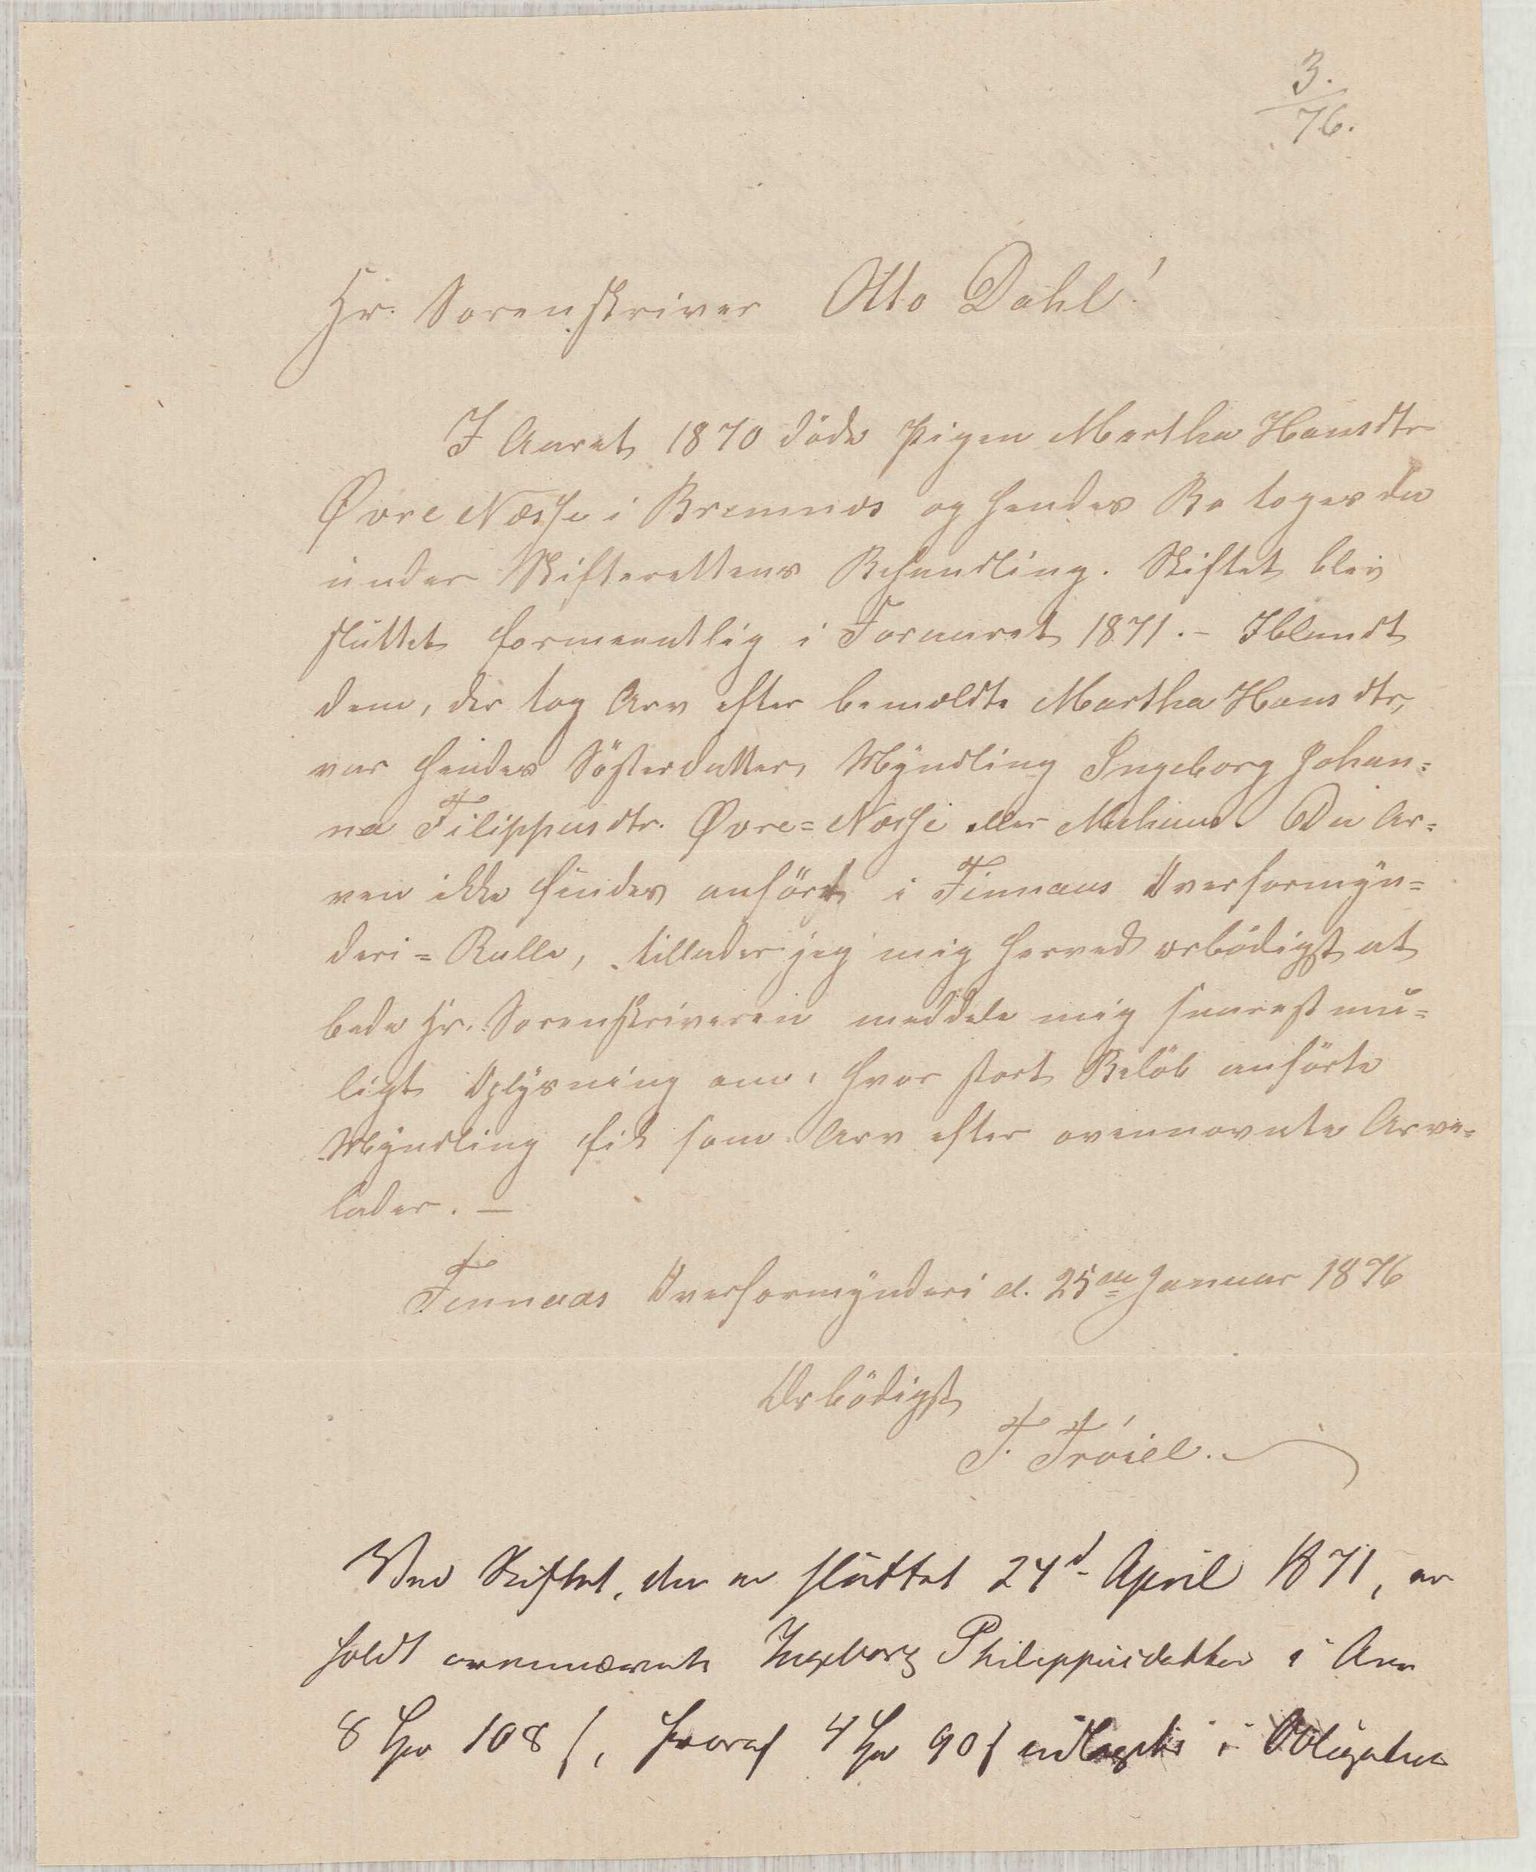 3.
76.
Hr. Sorenskriver Otto Dahl!
I Aaret 1870 döde Pigen Martha Hansdtr
Øvre Næsse i Bremnæs og hendes Bo toges da
under Skifterettens Behandling. Skiftet blev
sluttet formeentlig i Foraaret 1871. – Iblandt
dem, der tog Arv efter bemældte Martha Hansdtr,
var hendes Søsterdatter, Myndling Ingeborg Johan=
na Filippusdtr. Øvre=Næsse eller Mehuus. Da Ar=
ven ikke findes anført i Finnaas Overformyn=
deri=Rulle, tillader jeg mig herved ærbödigst at
bede Hr. Sorenskriveren meddele mig snarest mu=
ligt Oplysning om, hvor stort Belöb anförte
Myndling fik som Arv efter ovennævnte Arve=
lader. —
Finnaas Overformynderi d. 25de Januar 1876
Ærbödigst
T. Tröiel.
Ved Skiftet, der er sluttet 24d April 1871, er
holdt ovennævnte Ingeborg Philippusdatter i Arv
8 Spd 108 s, hvoraf 4 Spd 90 s udlagdes i Obligation